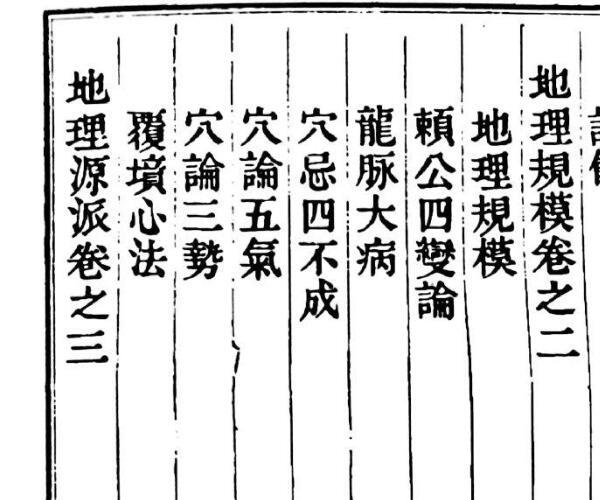 地理規模卷之二
地理規模
賴公四變論
龍脉大病
穴忌四不成
穴論五氣
穴論三勢
覆墳心法
地理源派卷之三